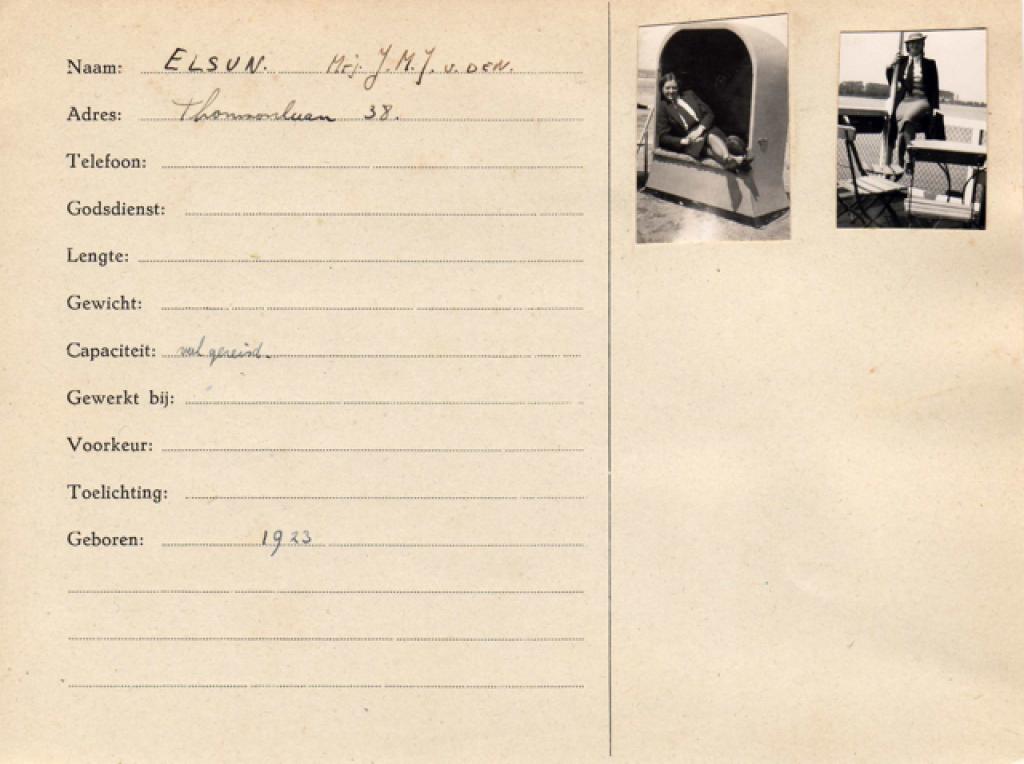 Naam: ELSUN. Mej. J.M.J. v. DEN.
Adres: Thomsonlaan 38.
Telefoon:
Godsdienst:
Lengte:
Gewicht:
Capaciteit: veel gereisd.
Gewerkt bij:
Voorkeur:
Toelichting:
Geboren: 1923